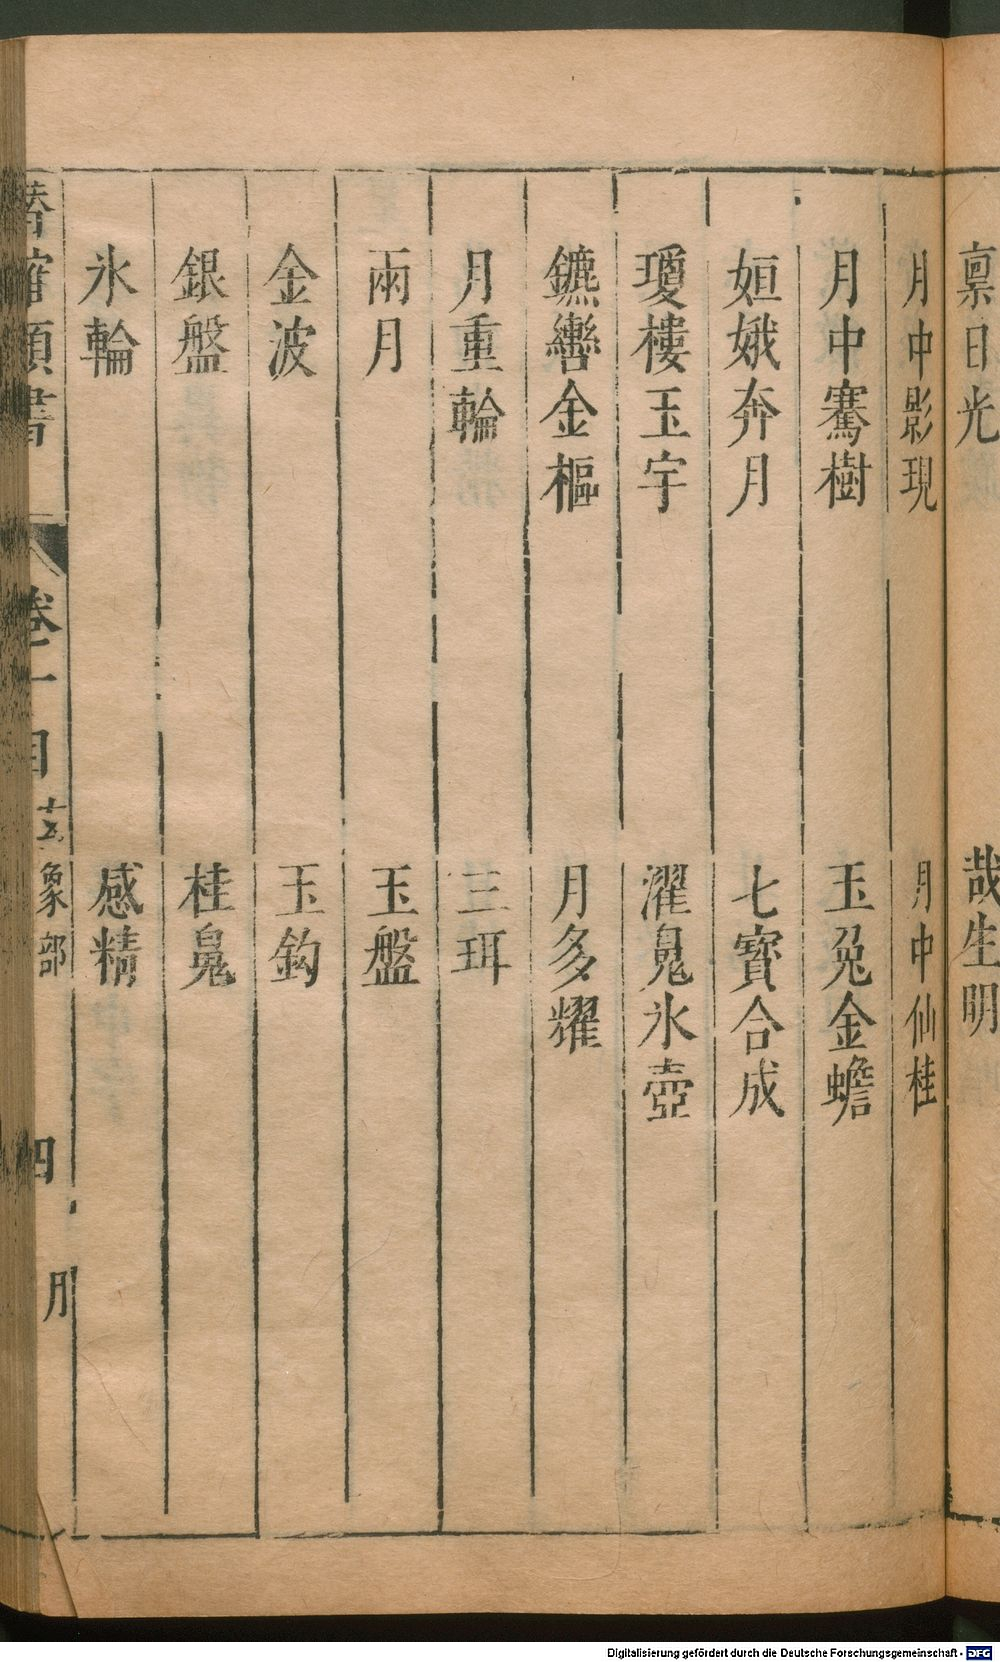 稟日光
哉生明
月中影現
月中仙桂
月中騫樹
玉兔金蟾
姮娥奔月
七寶合成
瓊樓玉宇
濯魄氷壺
鑣轡金樞
月多耀
月重輪
三珥
兩月
玉盤
金波
玉鈎
銀盤
桂魄
氷輪
感精
類書
卷一目
玄象部
四
月
Digitalisierung gefördert durch die Deutsche Forschungsgemeinschaft - DFG